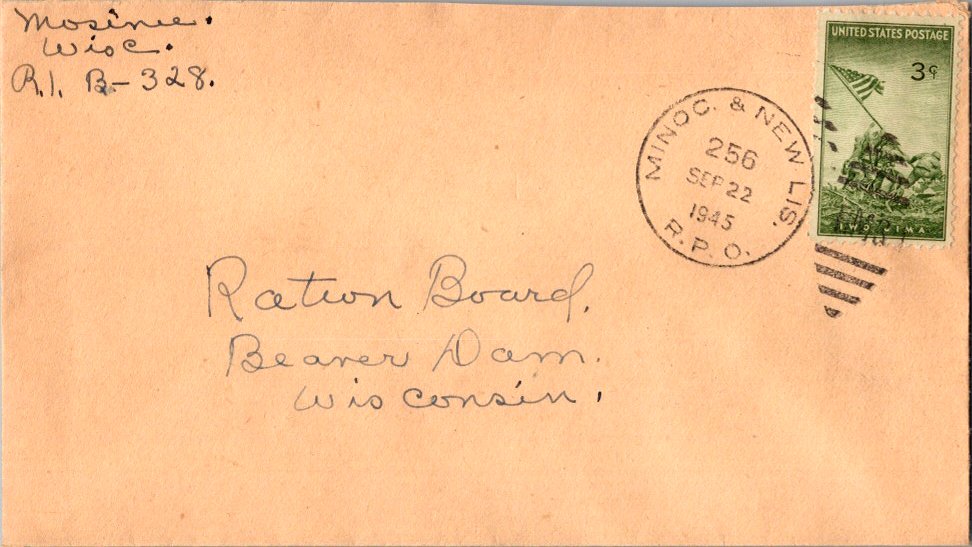 Mosinee.
Wisc.
R.1. B-328.
UNITED STATES POSTAGE
3¢
IWO JIMA
MINOC. & NEW LIS.
256
SEP 22
1945
R.P.O.
Ration Board,
Beaver Dam.
Wisconsin.